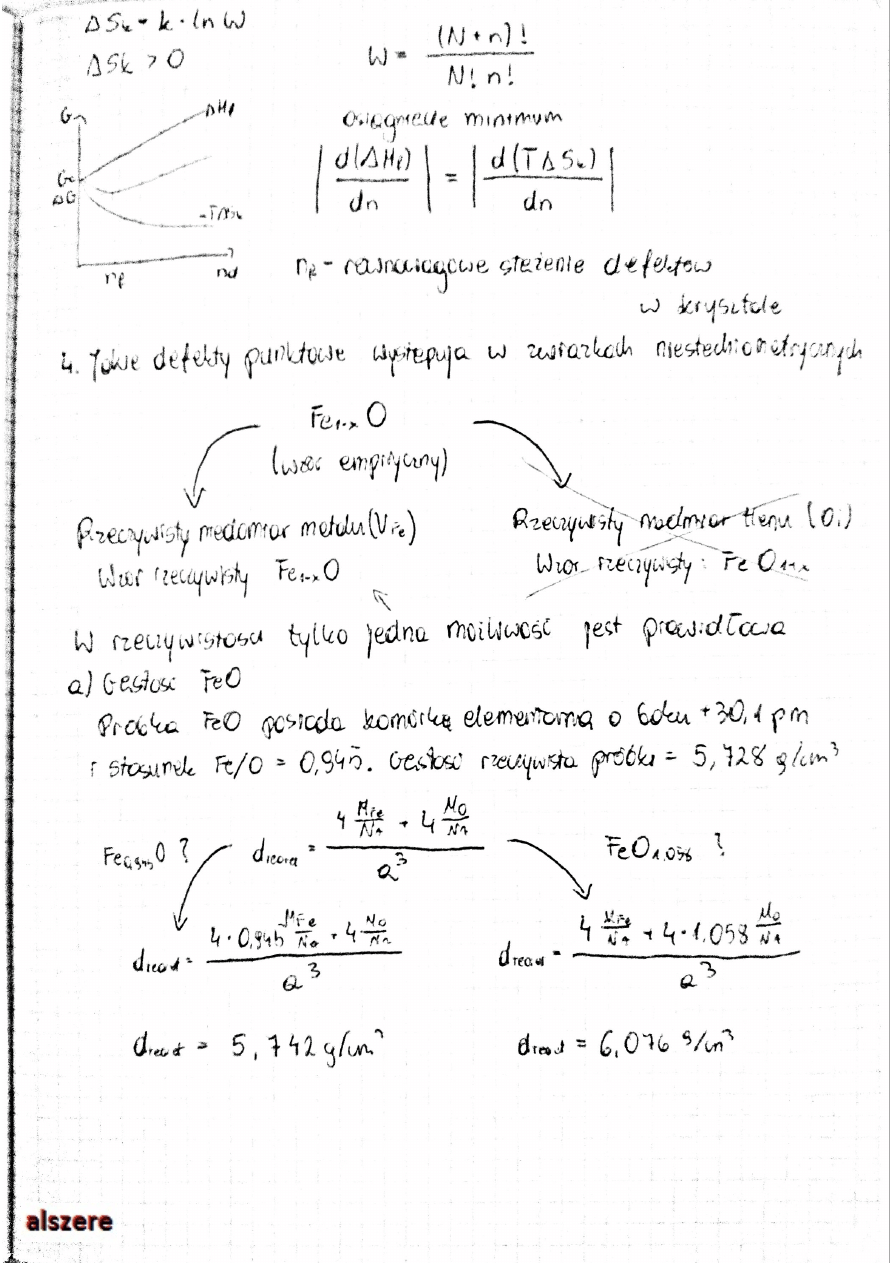 ΔSk = k · ln W
ΔSk > 0
W = (N + n)! / N! n!
osiągnięcie minimum
|d(ΔHf) / dn| = |d(TΔSk) / dn|
G
ΔHf
ΔG
-TΔSk
nf
nd
nf - równowagowe stężenie defektów
w krysztale
4. Jakie defekty punktowe występują w związkach niestechiometrycznych
Fe1-xO
(wzór empiryczny)
Rzeczywisty niedomiar metalu (VFe)
Wzór rzeczywisty Fe1-xO
Rzeczywisty nadmiar tlenu (Oi)
Wzór rzeczywisty: FeO1+x
W rzeczywistości tylko jedna możliwość jest prawidłowa
a) Gęstość FeO
Próbka FeO posiada komórkę elementarną o boku 430,1 pm
i stosunek Fe/O = 0,945. Gęstość rzeczywista próbki = 5,728 g/cm³
Fe0,945O ?
= (4 MFe/NA + 4 MO/NA) / a³
FeO1,058 ?
= (4 · 0,945 MFe/NA + 4 MO/NA) / a³
= (4 MFe/NA + 4 · 1,058 MO/NA) / a³
= 5,742 g/cm³
= 6,076 g/cm³
alszere